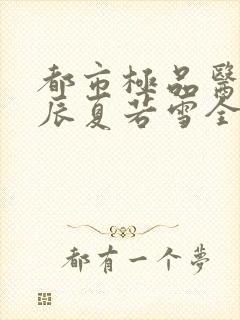 都市極品醫
辰夏若雪全
都有一个夢